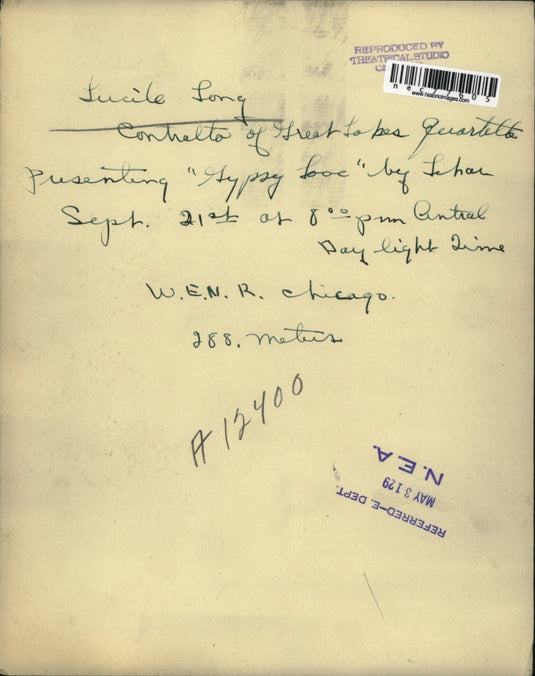 REPRODUCED BY
THEATRICAL STUDIO
nec77605
www.historicimages.com
Lucile Long
Contralto of Great Lakes Quartette
Presenting "Gypsy Love" by Lehar
Sept. 21st at 8⁰⁰ pm Central
Day light Time
W.E.N.R. Chicago.
288. Meters
A 12400
N.E.A.
MAY 31 29
REFERRED-E. DEPT.